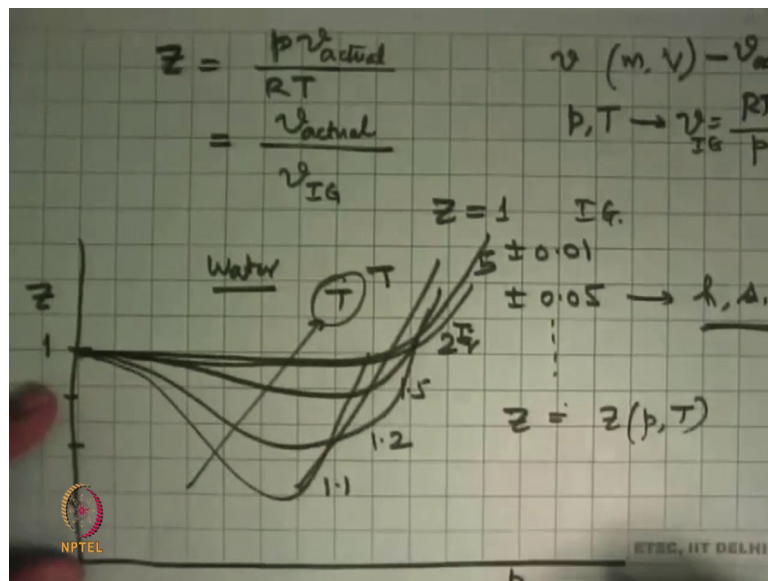 Z = p v actual / RT
= v actual / v IG
v (m, V) – v
p, T → v IG = RT / p
Z = 1 IG.
± 0.01
± 0.05 → h, s,
Z = Z(p, T)
Water
T T
Z
1
5
2
1.5
1.2
1.1
p
NPTEL
ETSC, IIT DELHI